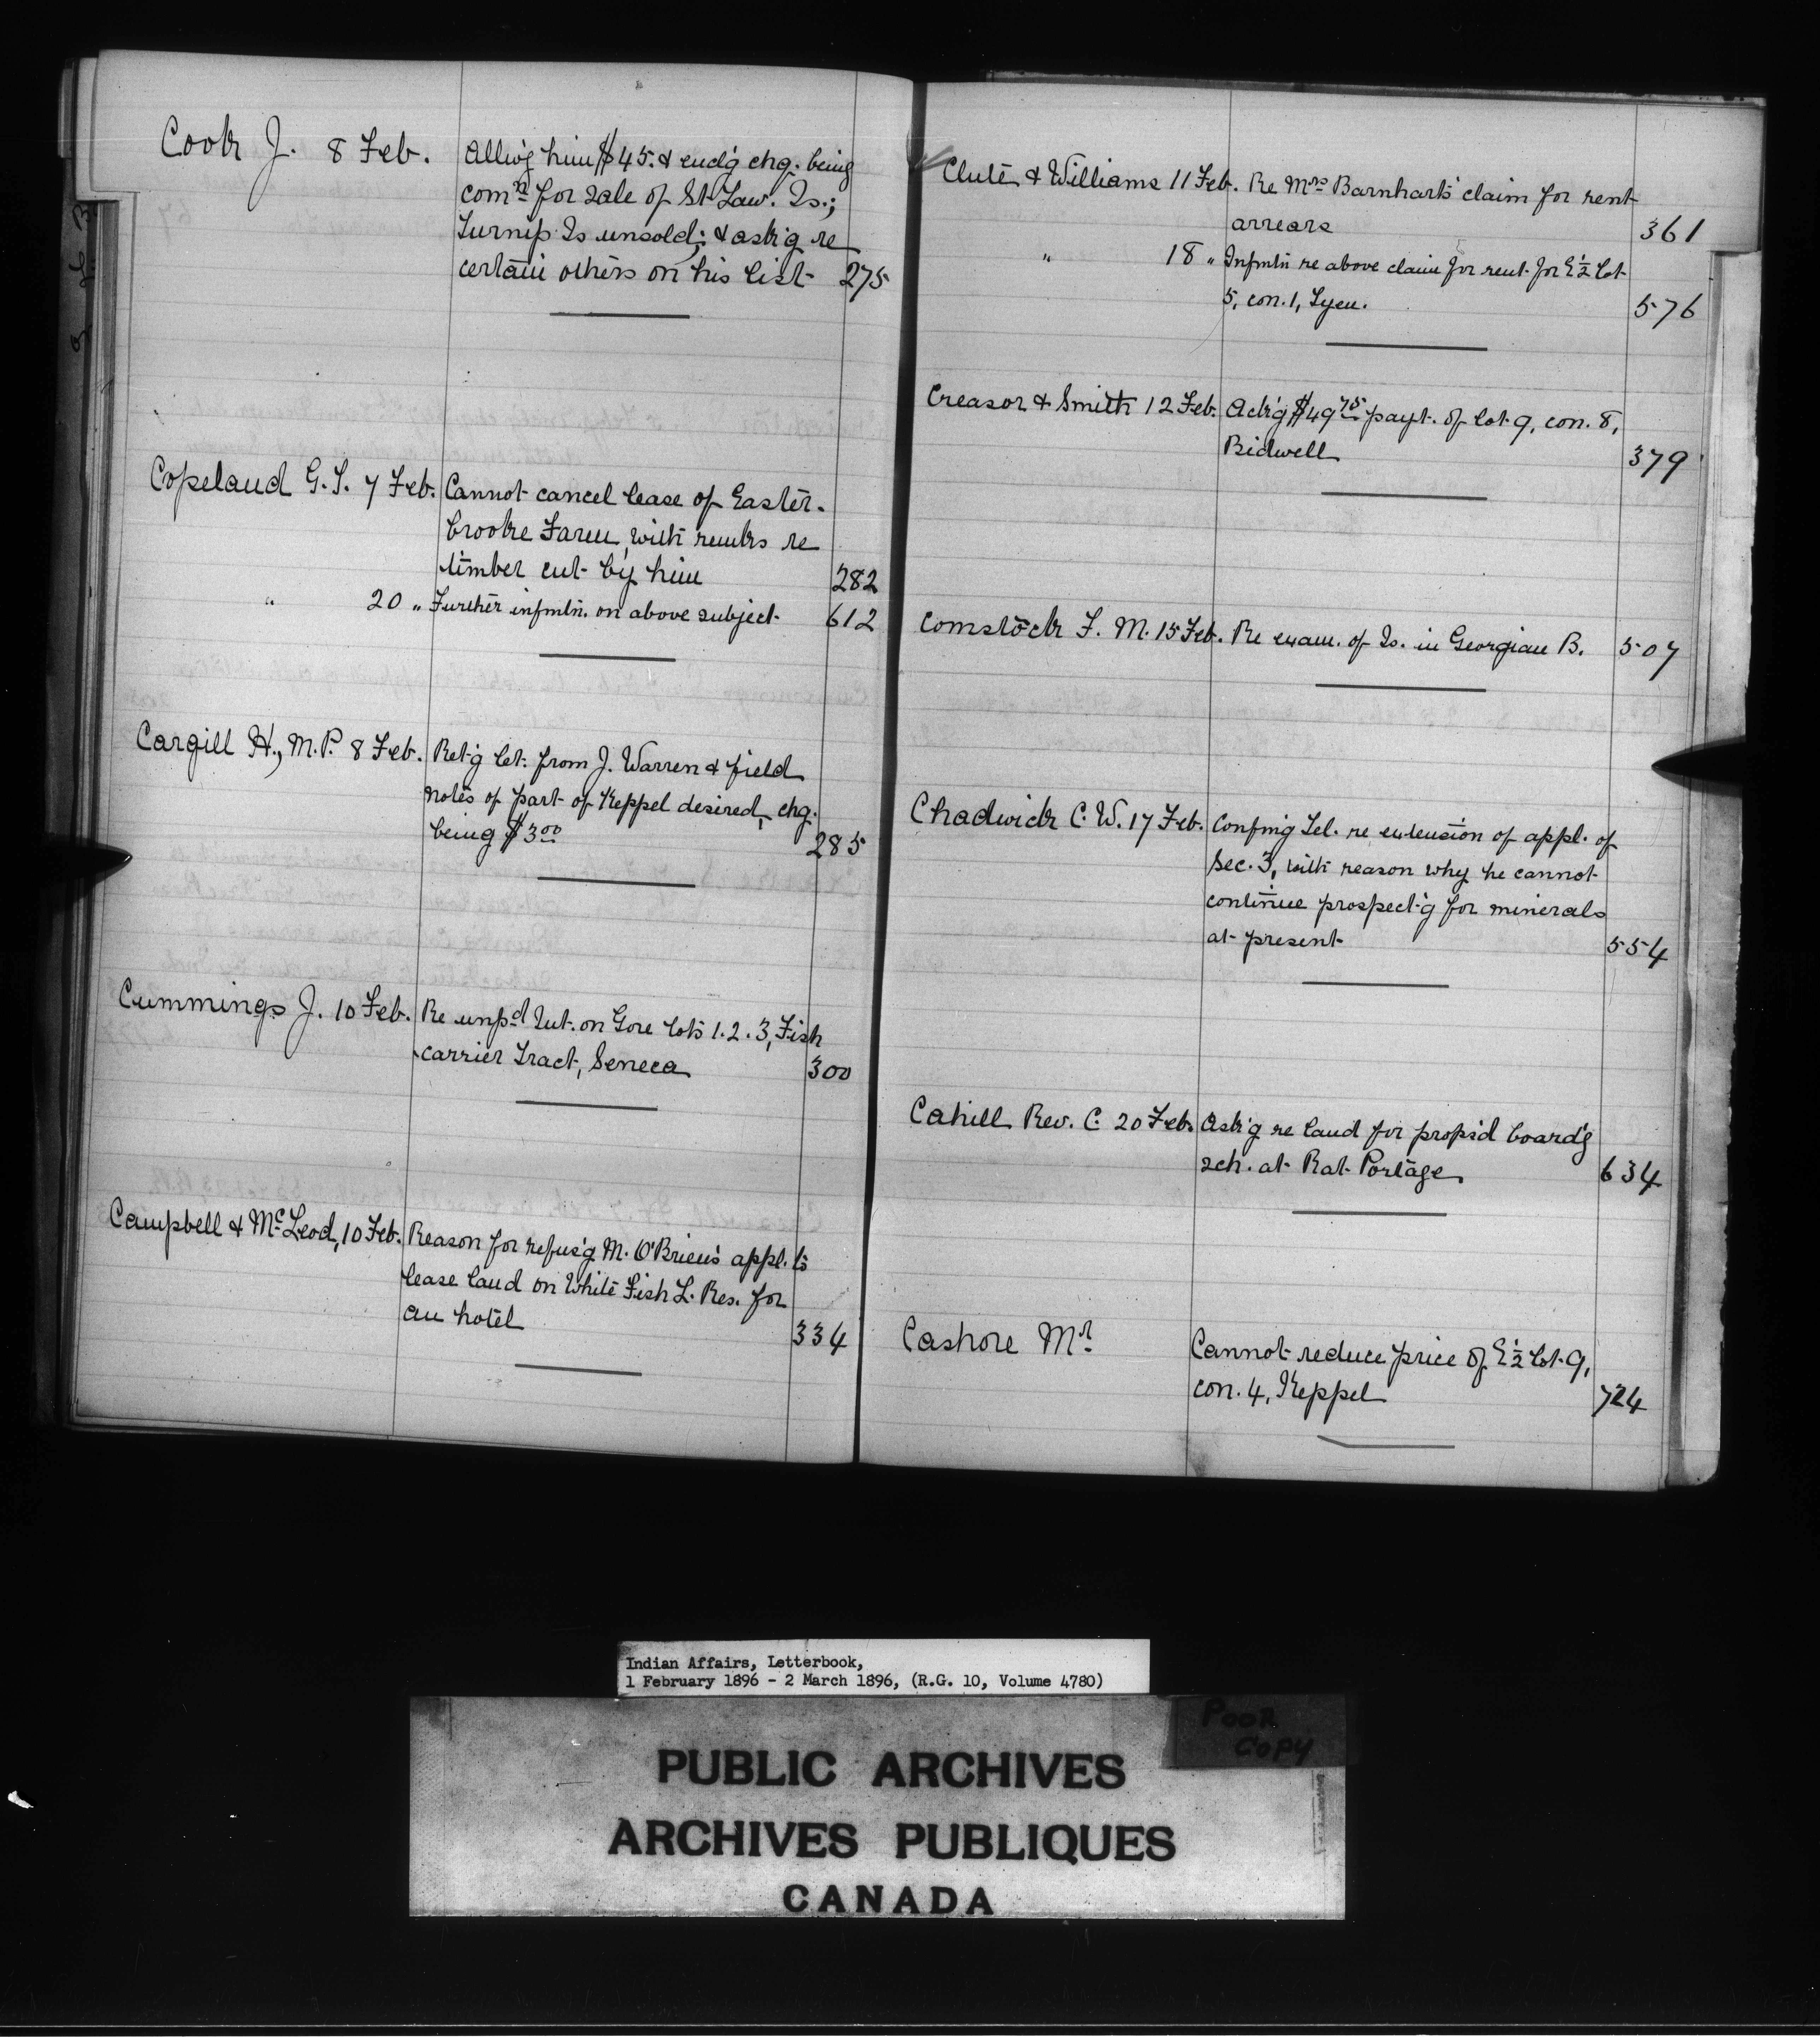 Cook J. 8 Feb. Allw'g him $45. & encl'g chq. being
comn for sale of St. Law. Is.;
Turnip Is unsold; & ask'g re
certain others on his list 275
Copeland G. S. 7 Feb. Cannot cancel lease of Easter-
brooke Farm, with remks re
timber cut by him 282
" 20 " Further infmtn. on above subject 612
Cargill H., M.P. 8 Feb. Ret'g let. from J. Warren & field
notes of part of Keppel desired, chg.
being $3.00 285
Cummings J. 10 Feb. Re unpd Int. on Gore lots 1. 2. 3, Fish
carrier Tract, Seneca 300
Campbell & McLeod, 10 Feb. Reason for refus'g M. O'Brien's appl. to
lease land on White Fish L. Res. for
an hotel 334
Clute & Williams 11 Feb. Re Mrs Barnhart's claim for rent
arrears 361
" 18 " Infmtn re above claim for rent for E ½ lot
5, con. 1, Tyen. 576
Creasor & Smith 12 Feb. Ack'g $49 75 payt. of lot 9, con. 8,
Bidwell 379
Comstock F. M. 15 Feb. Re exam. of Is. in Georgian B. 507
Chadwick C. W. 17 Feb. Confing Tel. re extension of appl. of
Sec. 3, with reason why he cannot
continue prospect'g for minerals
at present 554
Cahill Rev. C. 20 Feb. Ask'g re land for props'd board'g
sch. at Rat Portage 634
Cashore Mr. Cannot reduce price of E ½ lot 9,
con. 4, Keppel 724
Indian Affairs, Letterbook,
1 February 1896 - 2 March 1896, (R.G. 10, Volume 4780)
POOR
COPY
PUBLIC ARCHIVES
ARCHIVES PUBLIQUES
CANADA